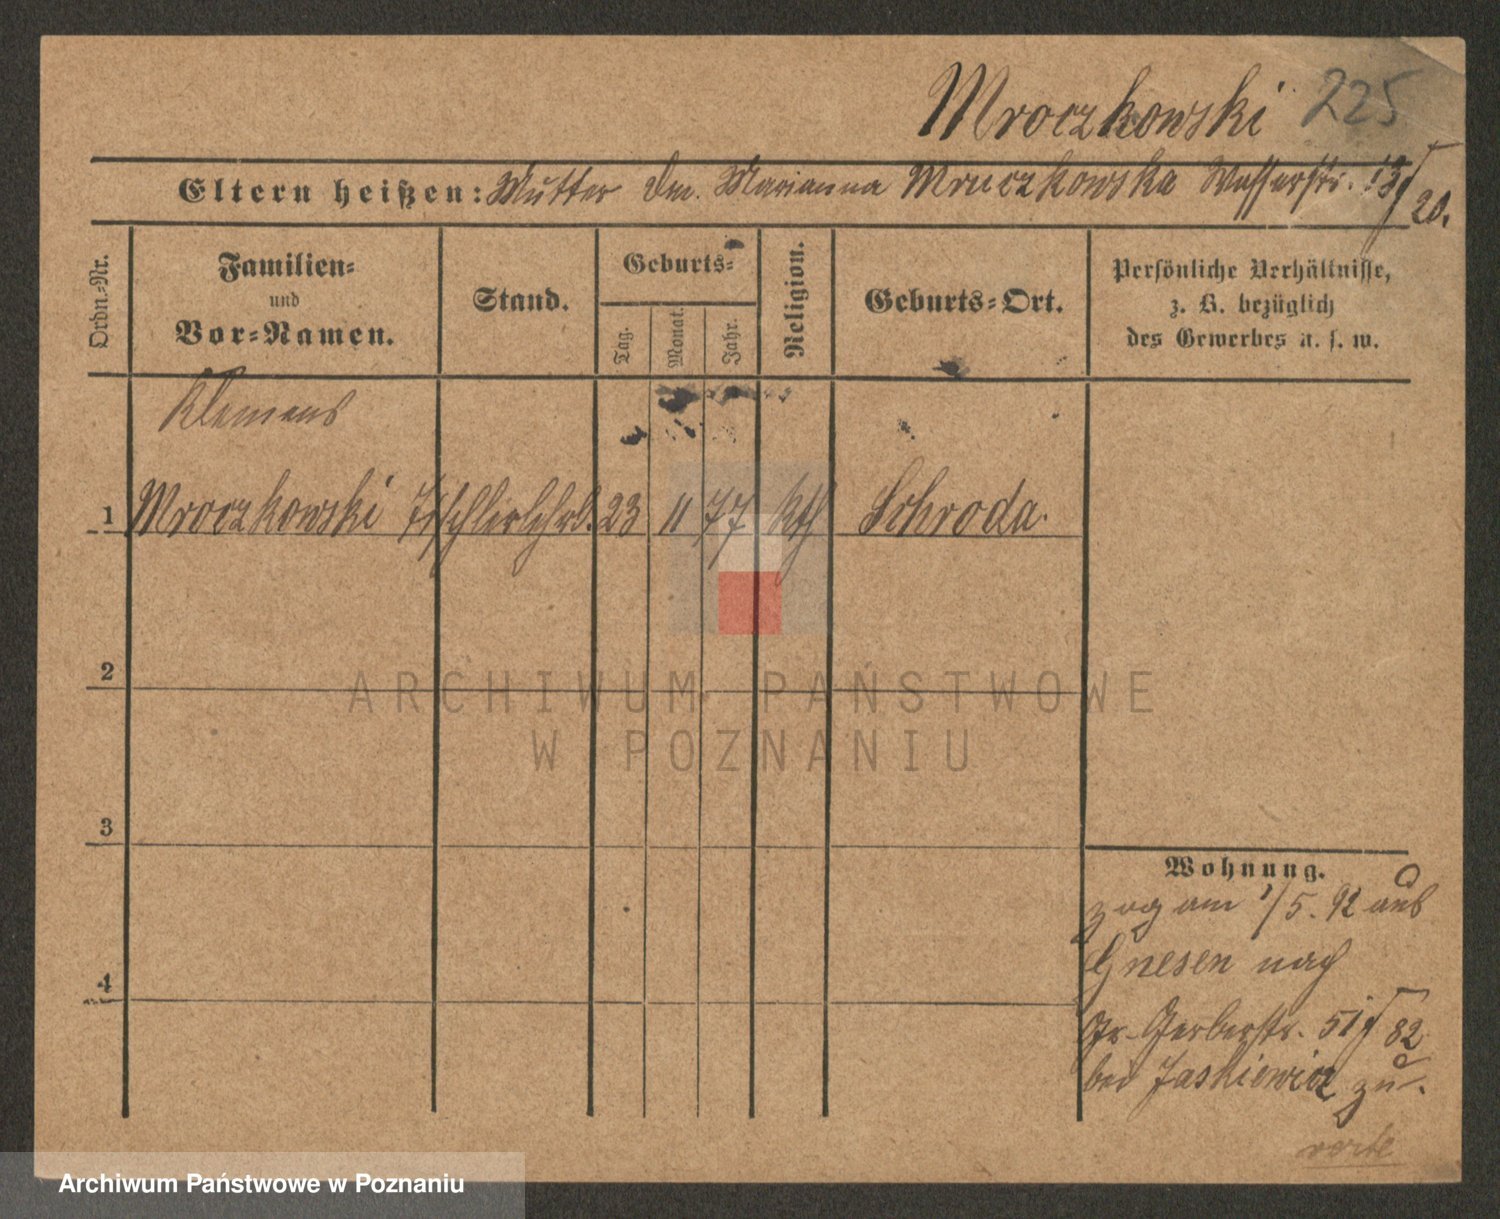 Mroczkowski 225
Eltern heißen: Mutter Marianna Mruczkowska Wasserstr. 13/20.
Ordn.-Nr.
Familien-
und
Vor-Namen.
Stand.
Geburts-
Tag.
Monat.
Jahr.
Religion.
Geburts-Ort.
Persönliche Verhältnisse,
z. B. bezüglich
des Gewerbes u. s. w.
Klemens
1 Mroczkowski Tischlerlehrl. 23 11 77 kth Schroda.
2
3
4
Wohnung.
zog am 1/5. 92 aus
Gnesen nach
Gr. Gerberstr. 51/82
bei Jaskiewicz zu.
ARCHIWUM PAŃSTWOWE
W POZNANIU
Archiwum Państwowe w Poznaniu